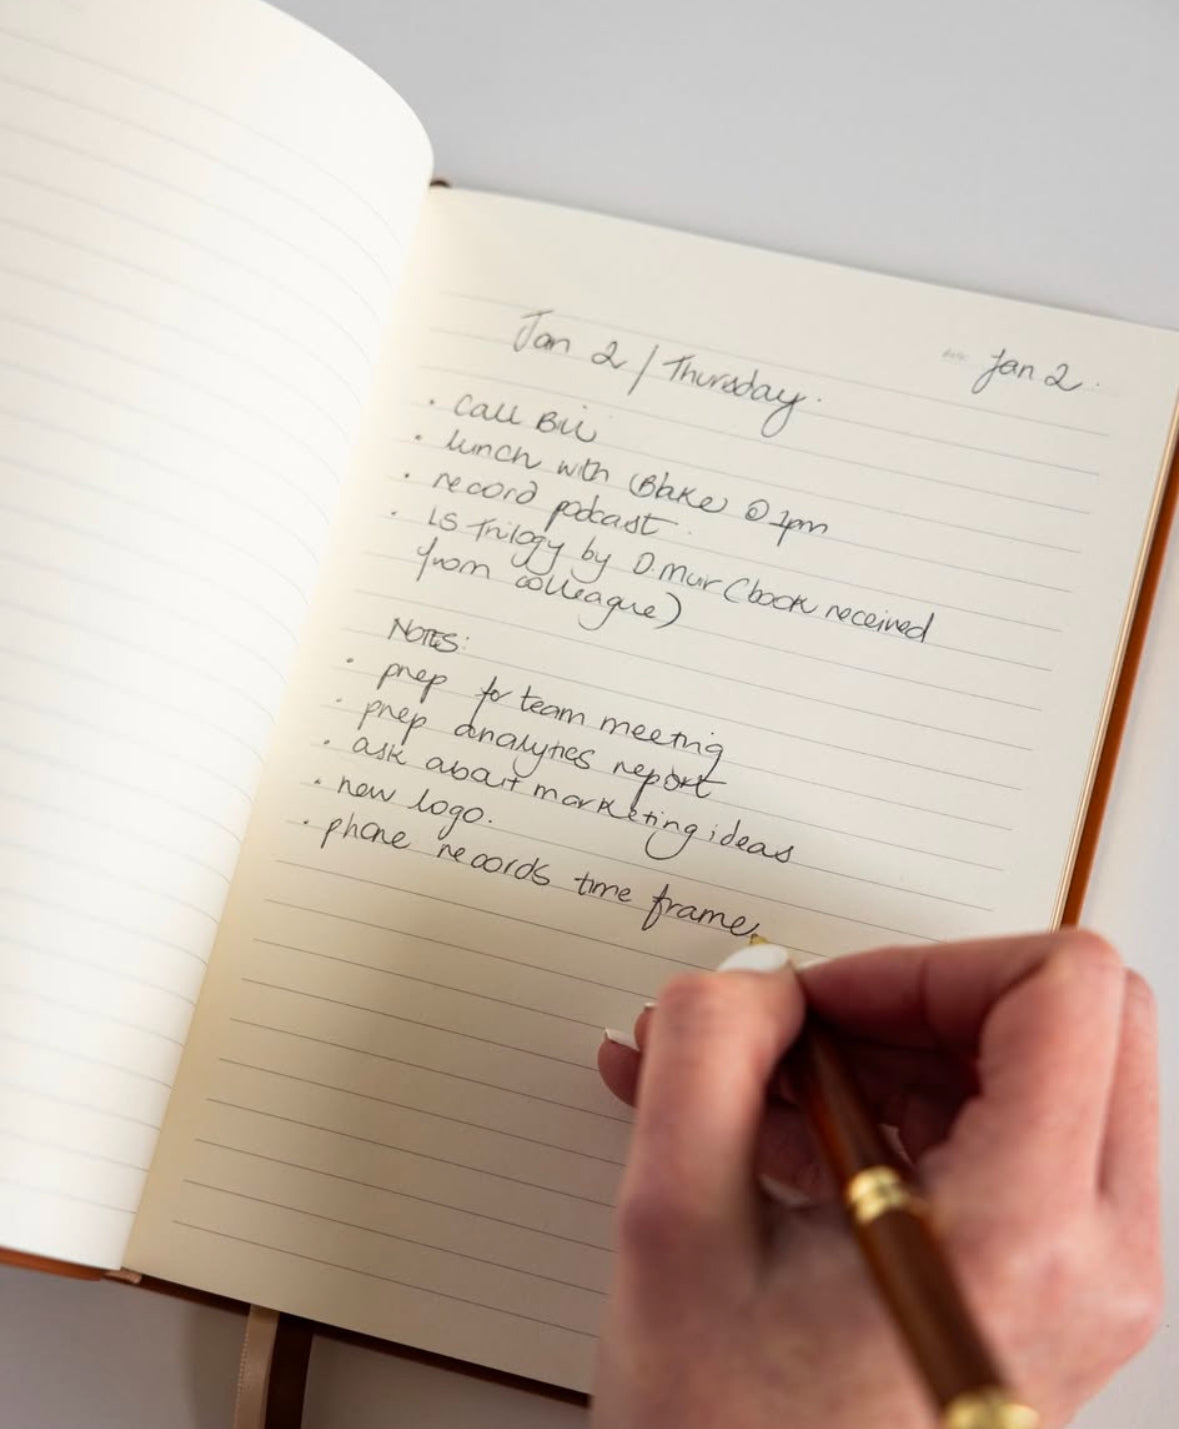 Jan 2
Jan 2 / Thursday.
· Call Bill
· lunch with Blake @ 1pm
· record podcast.
· LS Trilogy by D. Muir (book received
from colleague)
NOTES:
· prep for team meeting
· prep analytics report
· ask about marketing ideas
· new logo.
· phone records time frame.